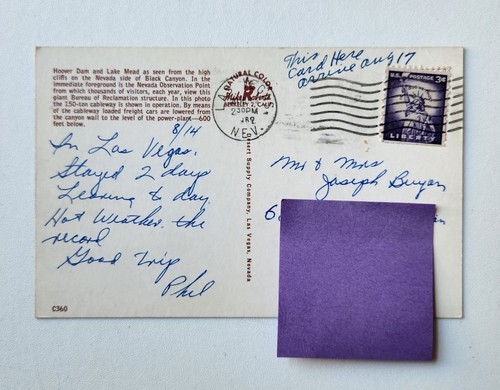 Hoover Dam and Lake Mead as seen from the high
cliffs on the Nevada side of Black Canyon. In the
immediate foreground is the Nevada Observation Point
from which thousands of visitors, each year, view this
giant Bureau of Reclamation structure. In this photo
the 150-ton cableway is shown in operation. By means
of the cableway loaded freight cars are lowered from
the canyon wall to the level of the power-plant—600
feet below.
8/14
In Las Vegas.
Stayed 2 days
Leaving to day
Hot Weather. the
record
Good Trip
Phil
C360
NATURAL COLOR
BERKELEY 2, CALIF.
230PM
NEV.
Desert Supply Company, Las Vegas, Nevada
This
Card Here
Aug 17
U.S. POSTAGE 3¢
LIBERTY
Mr & Mrs
Joseph
6